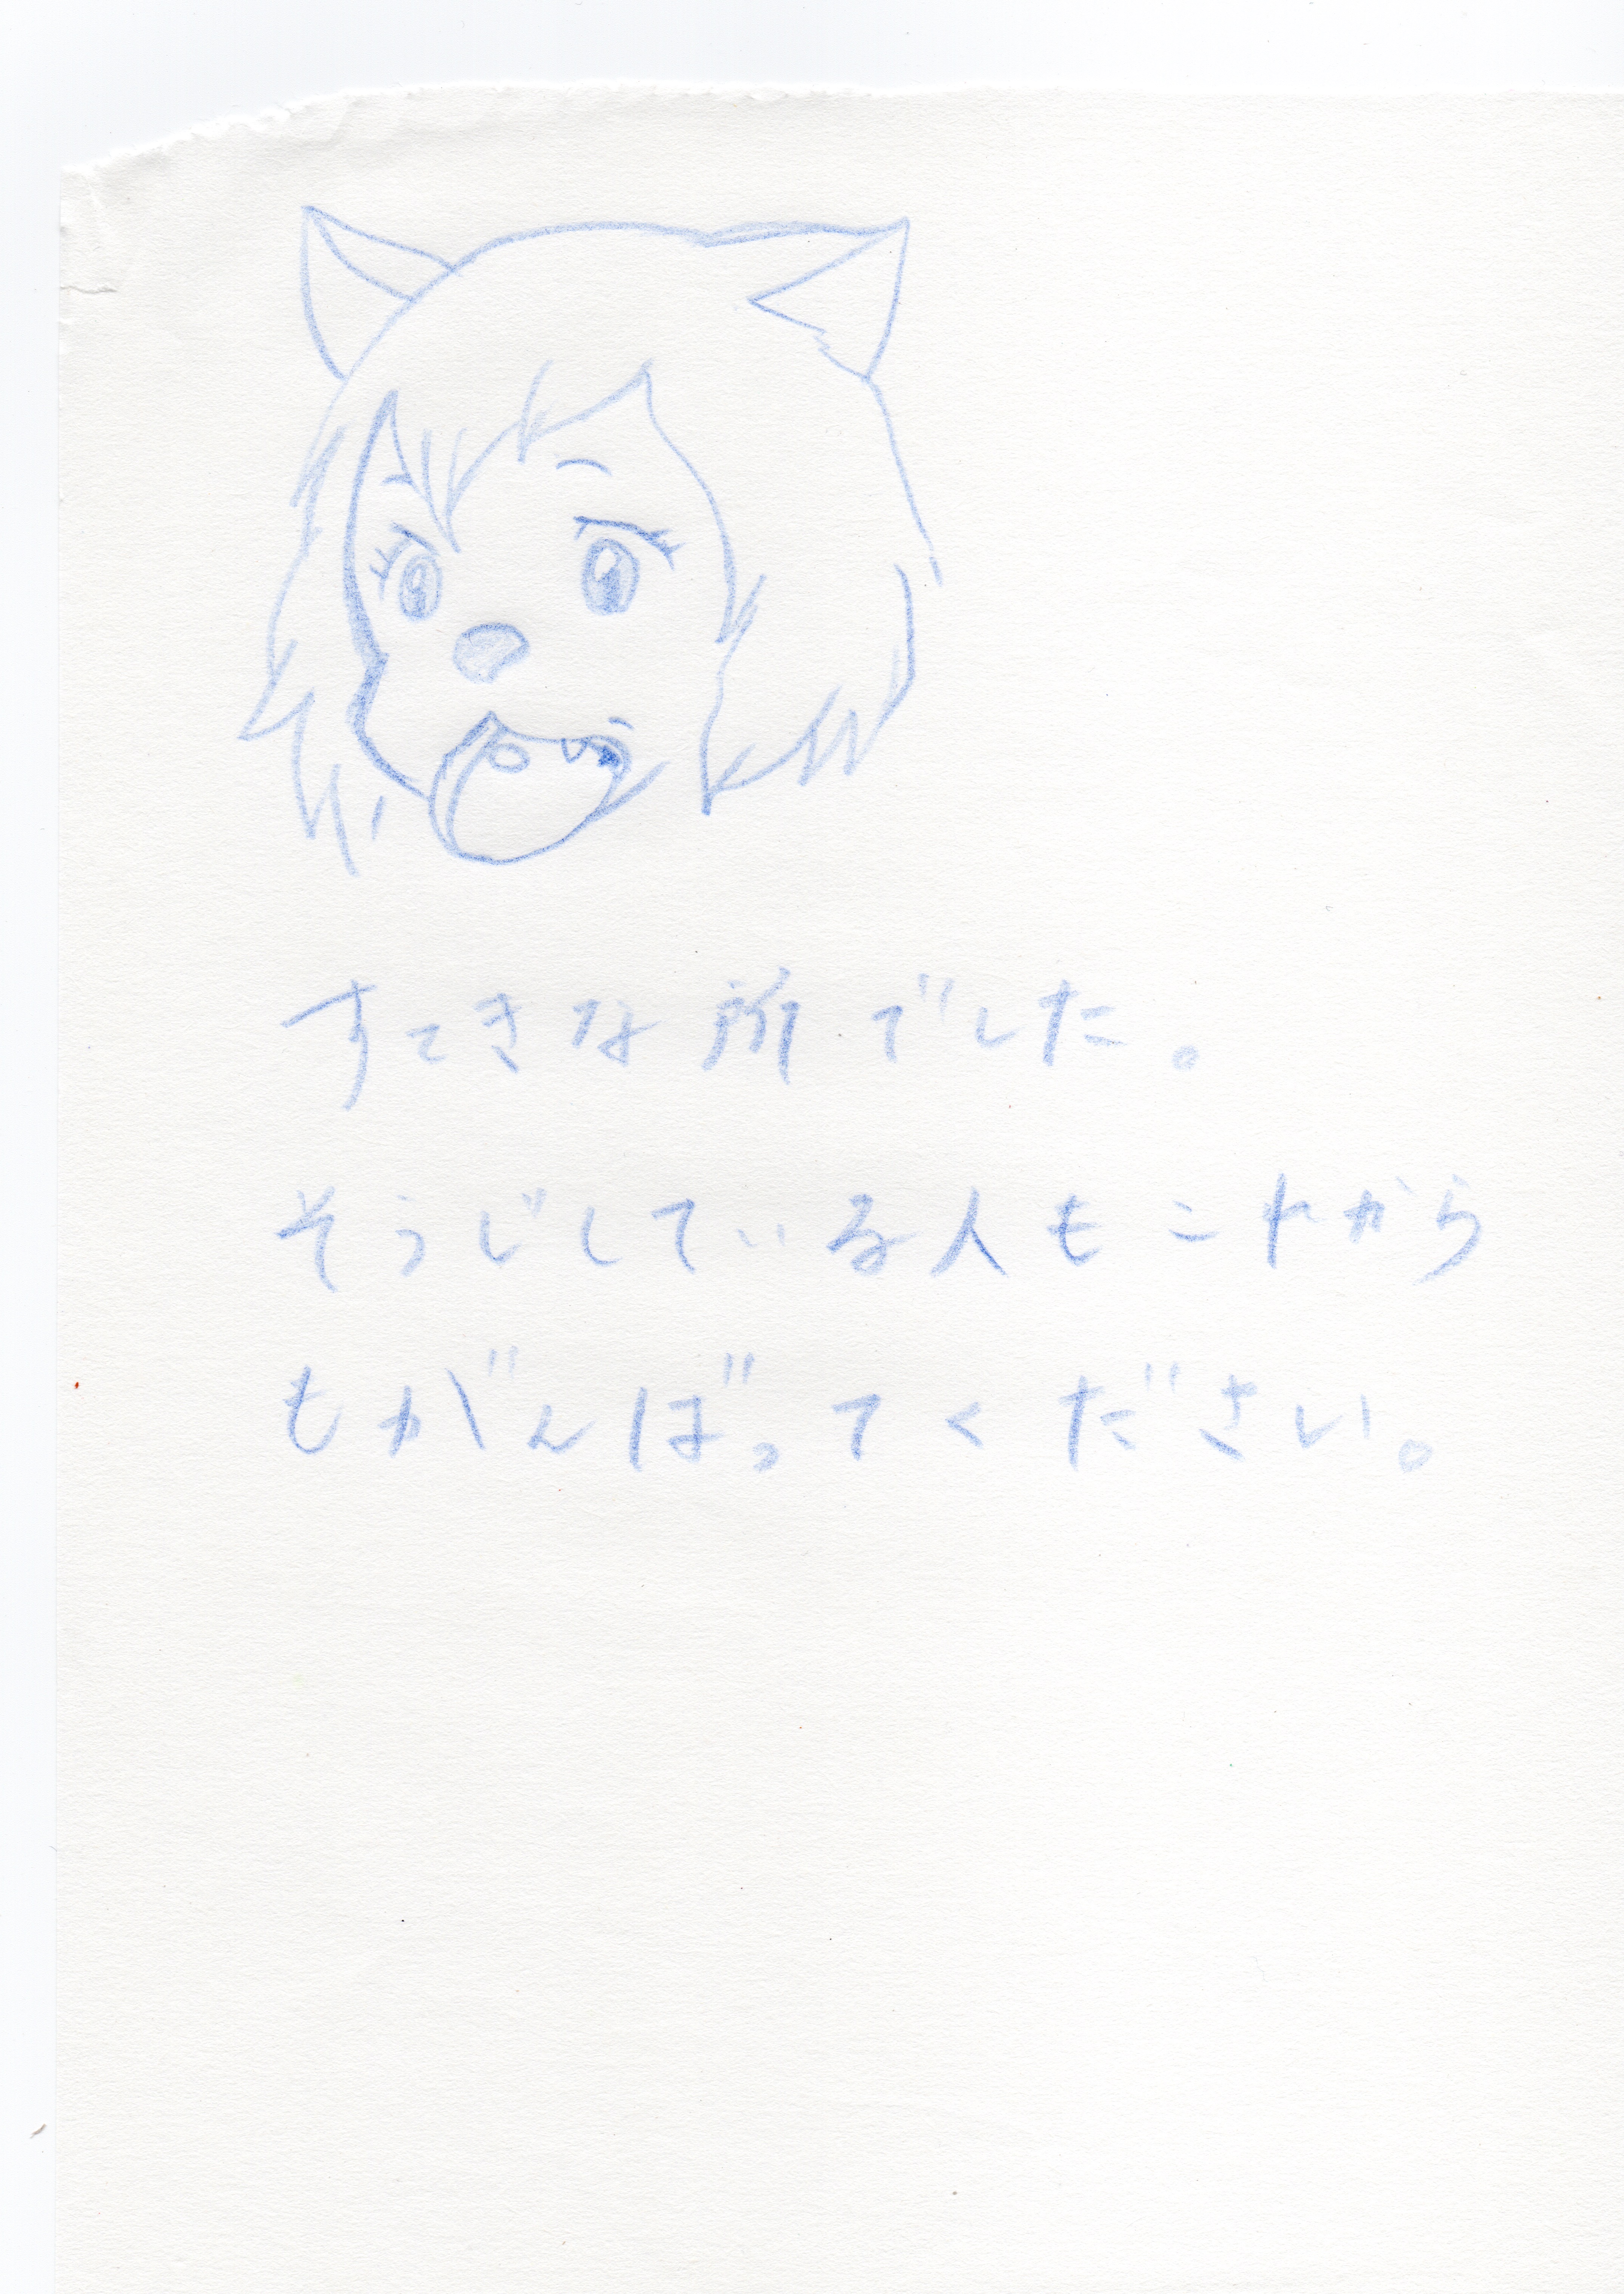 すてきな所でした。
そうじしている人もこれから
もがんばってください。